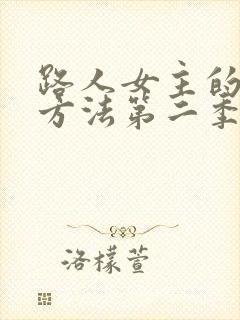 路人女主的
方法第二季
洛檬萱